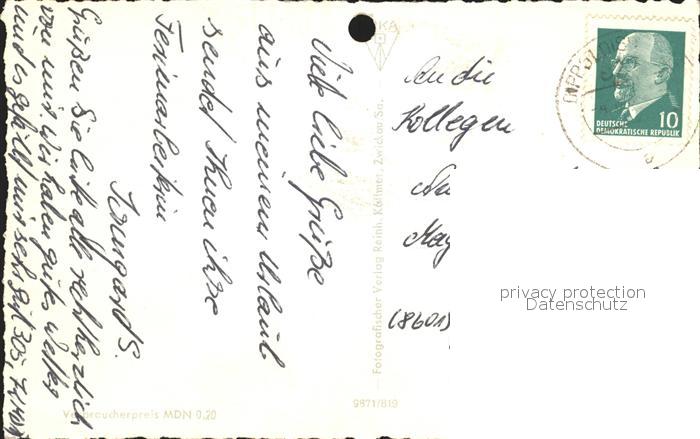 Viele liebe Grüße
aus meinem Urlaub
sendet Ihnen ihre
Irmgard S.
Grüßen Sie bitte alle recht herzlich
von mir. Wir haben gutes Wetter
und es gefällt mir sehr gut
An die
Kollegen
May
(8601)
DEUTSCHE
DEMOKRATISCHE REPUBLIK
10
privacy protection
Datenschutz
Fotografischer Verlag Reinh. Kallmer, Zwickau Sa.
9871/819
Verbraucherpreis MDN 0,20